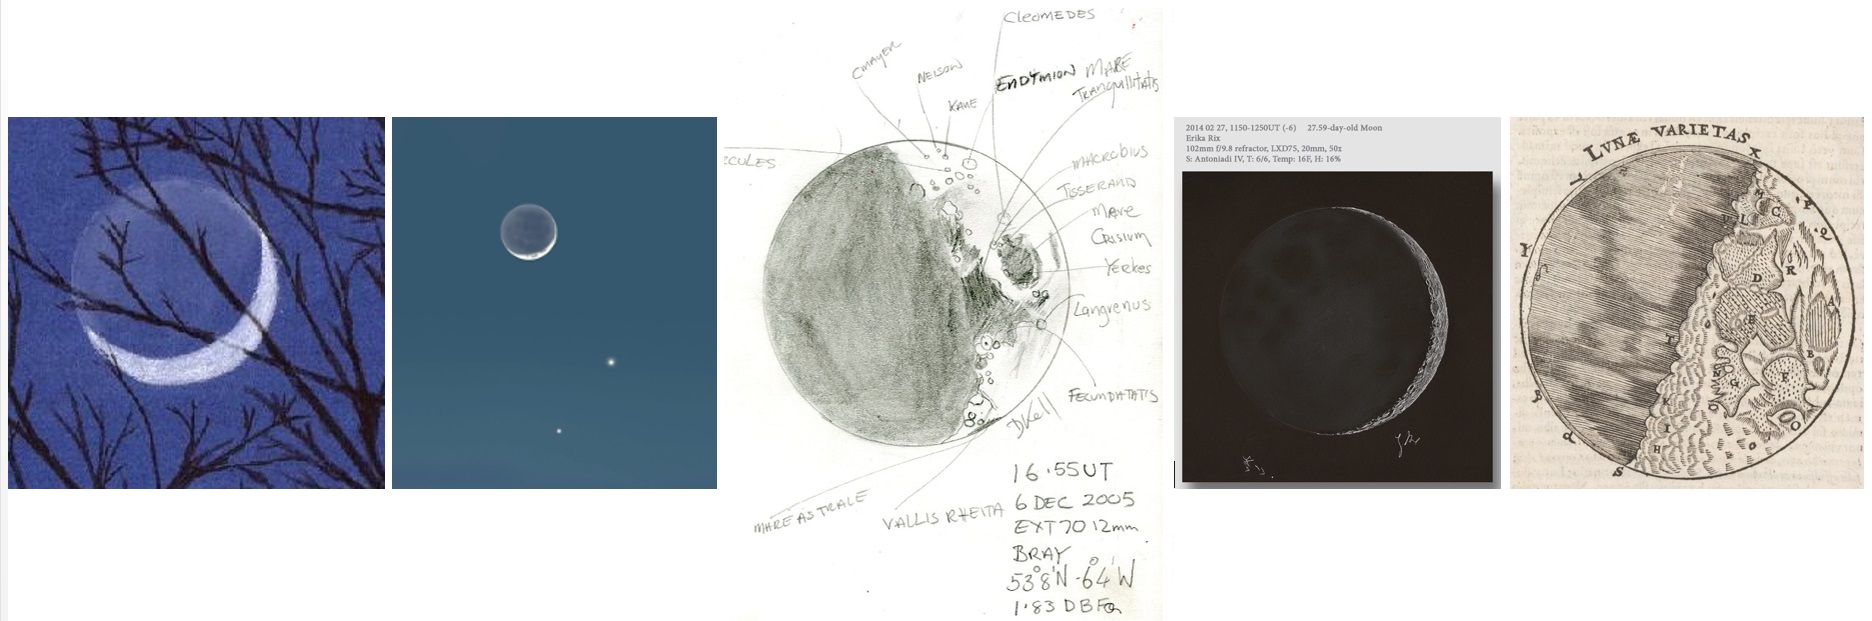 CLEOMEDES
CMAYER
NEISON
KANE
ENDYMION
MARE
TRANQUILLITATIS
CULES
MACROBIUS
TISSERAND
MARE
CRISIUM
YERKES
LANGRENUS
FECUNDATATIS
DKell
MARE ASTRALE
VALLIS RHEITA
16.55UT
6 DEC 2005
EXT70 12mm
BRAY
1.83
2014 02 27, 1150-1250UT (-6) 27.59-day-old Moon
Erika Rix
102mm f/9.8 refractor, LXD75, 20mm, 50x
S: Antoniadi IV, T: 6/6, Temp: 16F, H: 16%
LVNÆ VARIETAS
X
P
C
L
V
Q
R
D
A
E
B
F
G
K
I
H
O
S